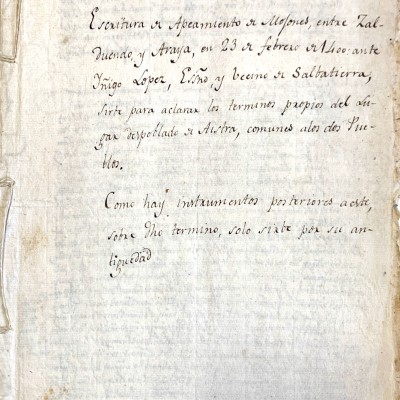 Escritura de Apeamiento de Mofones, entre Zal-
duendo y Araya, en 23 de febrero de 1400. ante
Iñigo Lopez, Esño, y Vecino de Salbatierra,
sirte para aclarar los terminos propios del Lu-
gar despoblado de Aistra, comunes alos dos Pue-
blos.
Como hay instrumentos posteriores aeste,
sobre dho termino, solo sirbe por su an-
tiguedad